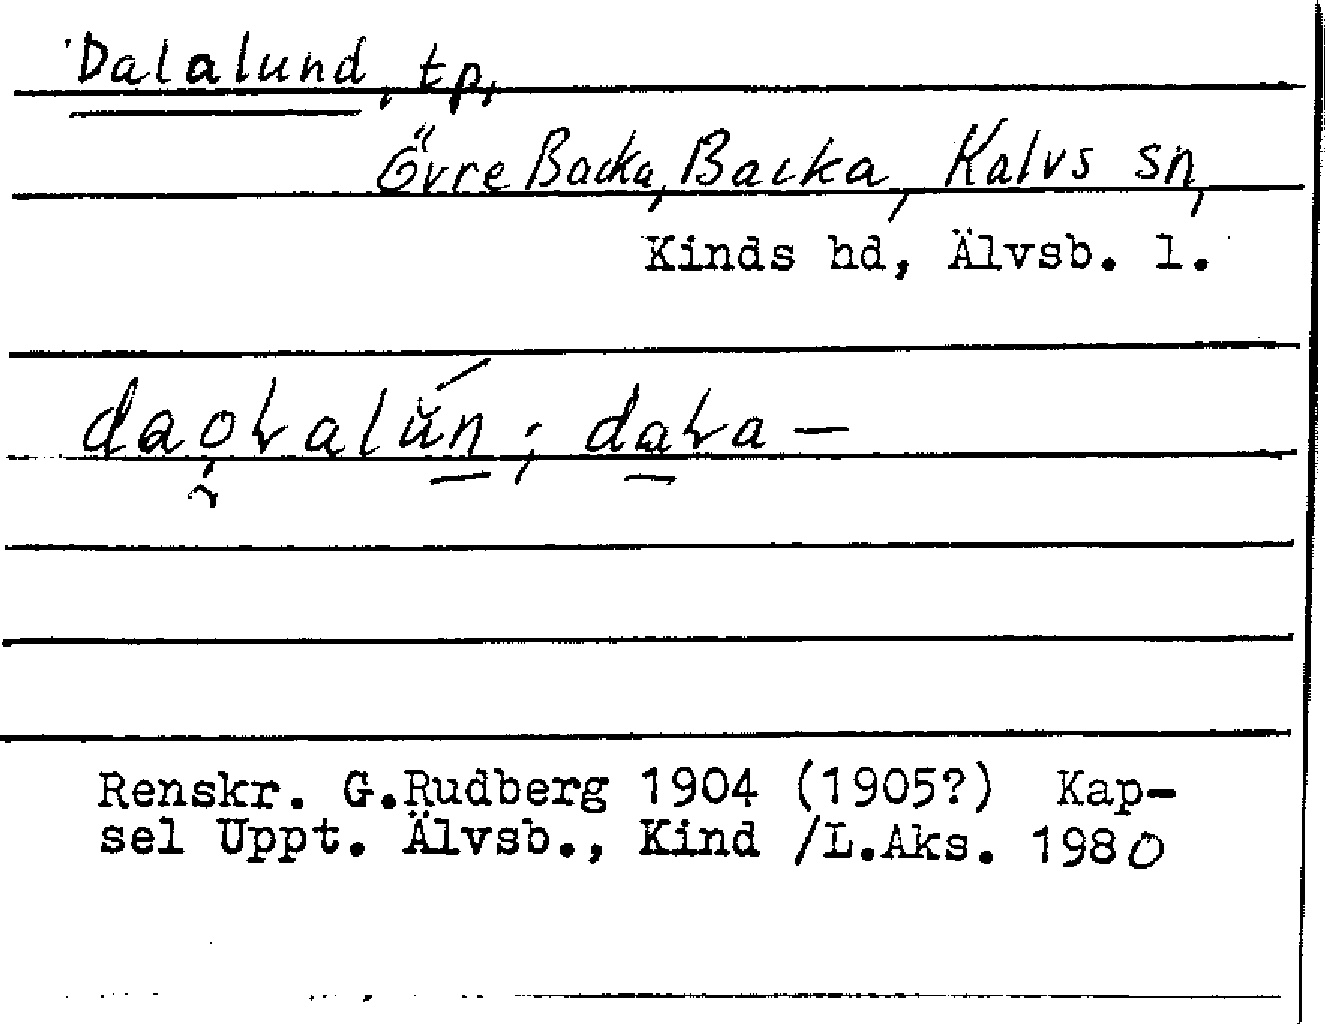 Dalalund, tp,
Övre Backa, Backa, Kalvs sn,
Kinds hd, Älvsb. l.
Renskr. G.Rudberg 1904 (1905?) Kap-
sel Uppt. Älvsb., Kind /L.Aks. 1980